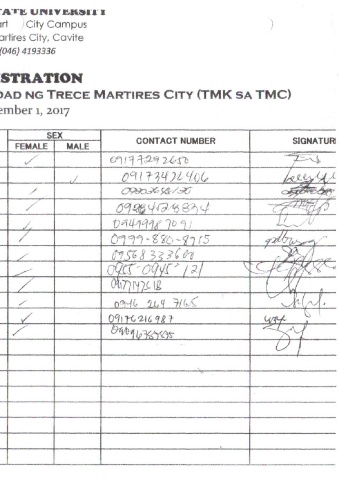 TATE UNIVERSITY
art City Campus
artires City, Cavite
(046) 4193336
ISTRATION
DAD NG TRECE MARTIRES CITY (TMK SA TMC)
ember 1, 2017
SEX
FEMALE MALE CONTACT NUMBER SIGNATUR
09197292650
09173426406
09984128834
09499987091
0999-880-8715
09568333608
0955-0945-121
0977147618
0946 269 7165
09176216987